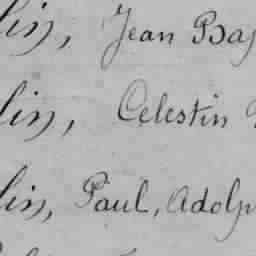 lin, Jean Bap
lin, Celestin
lin, Paul, Adolp